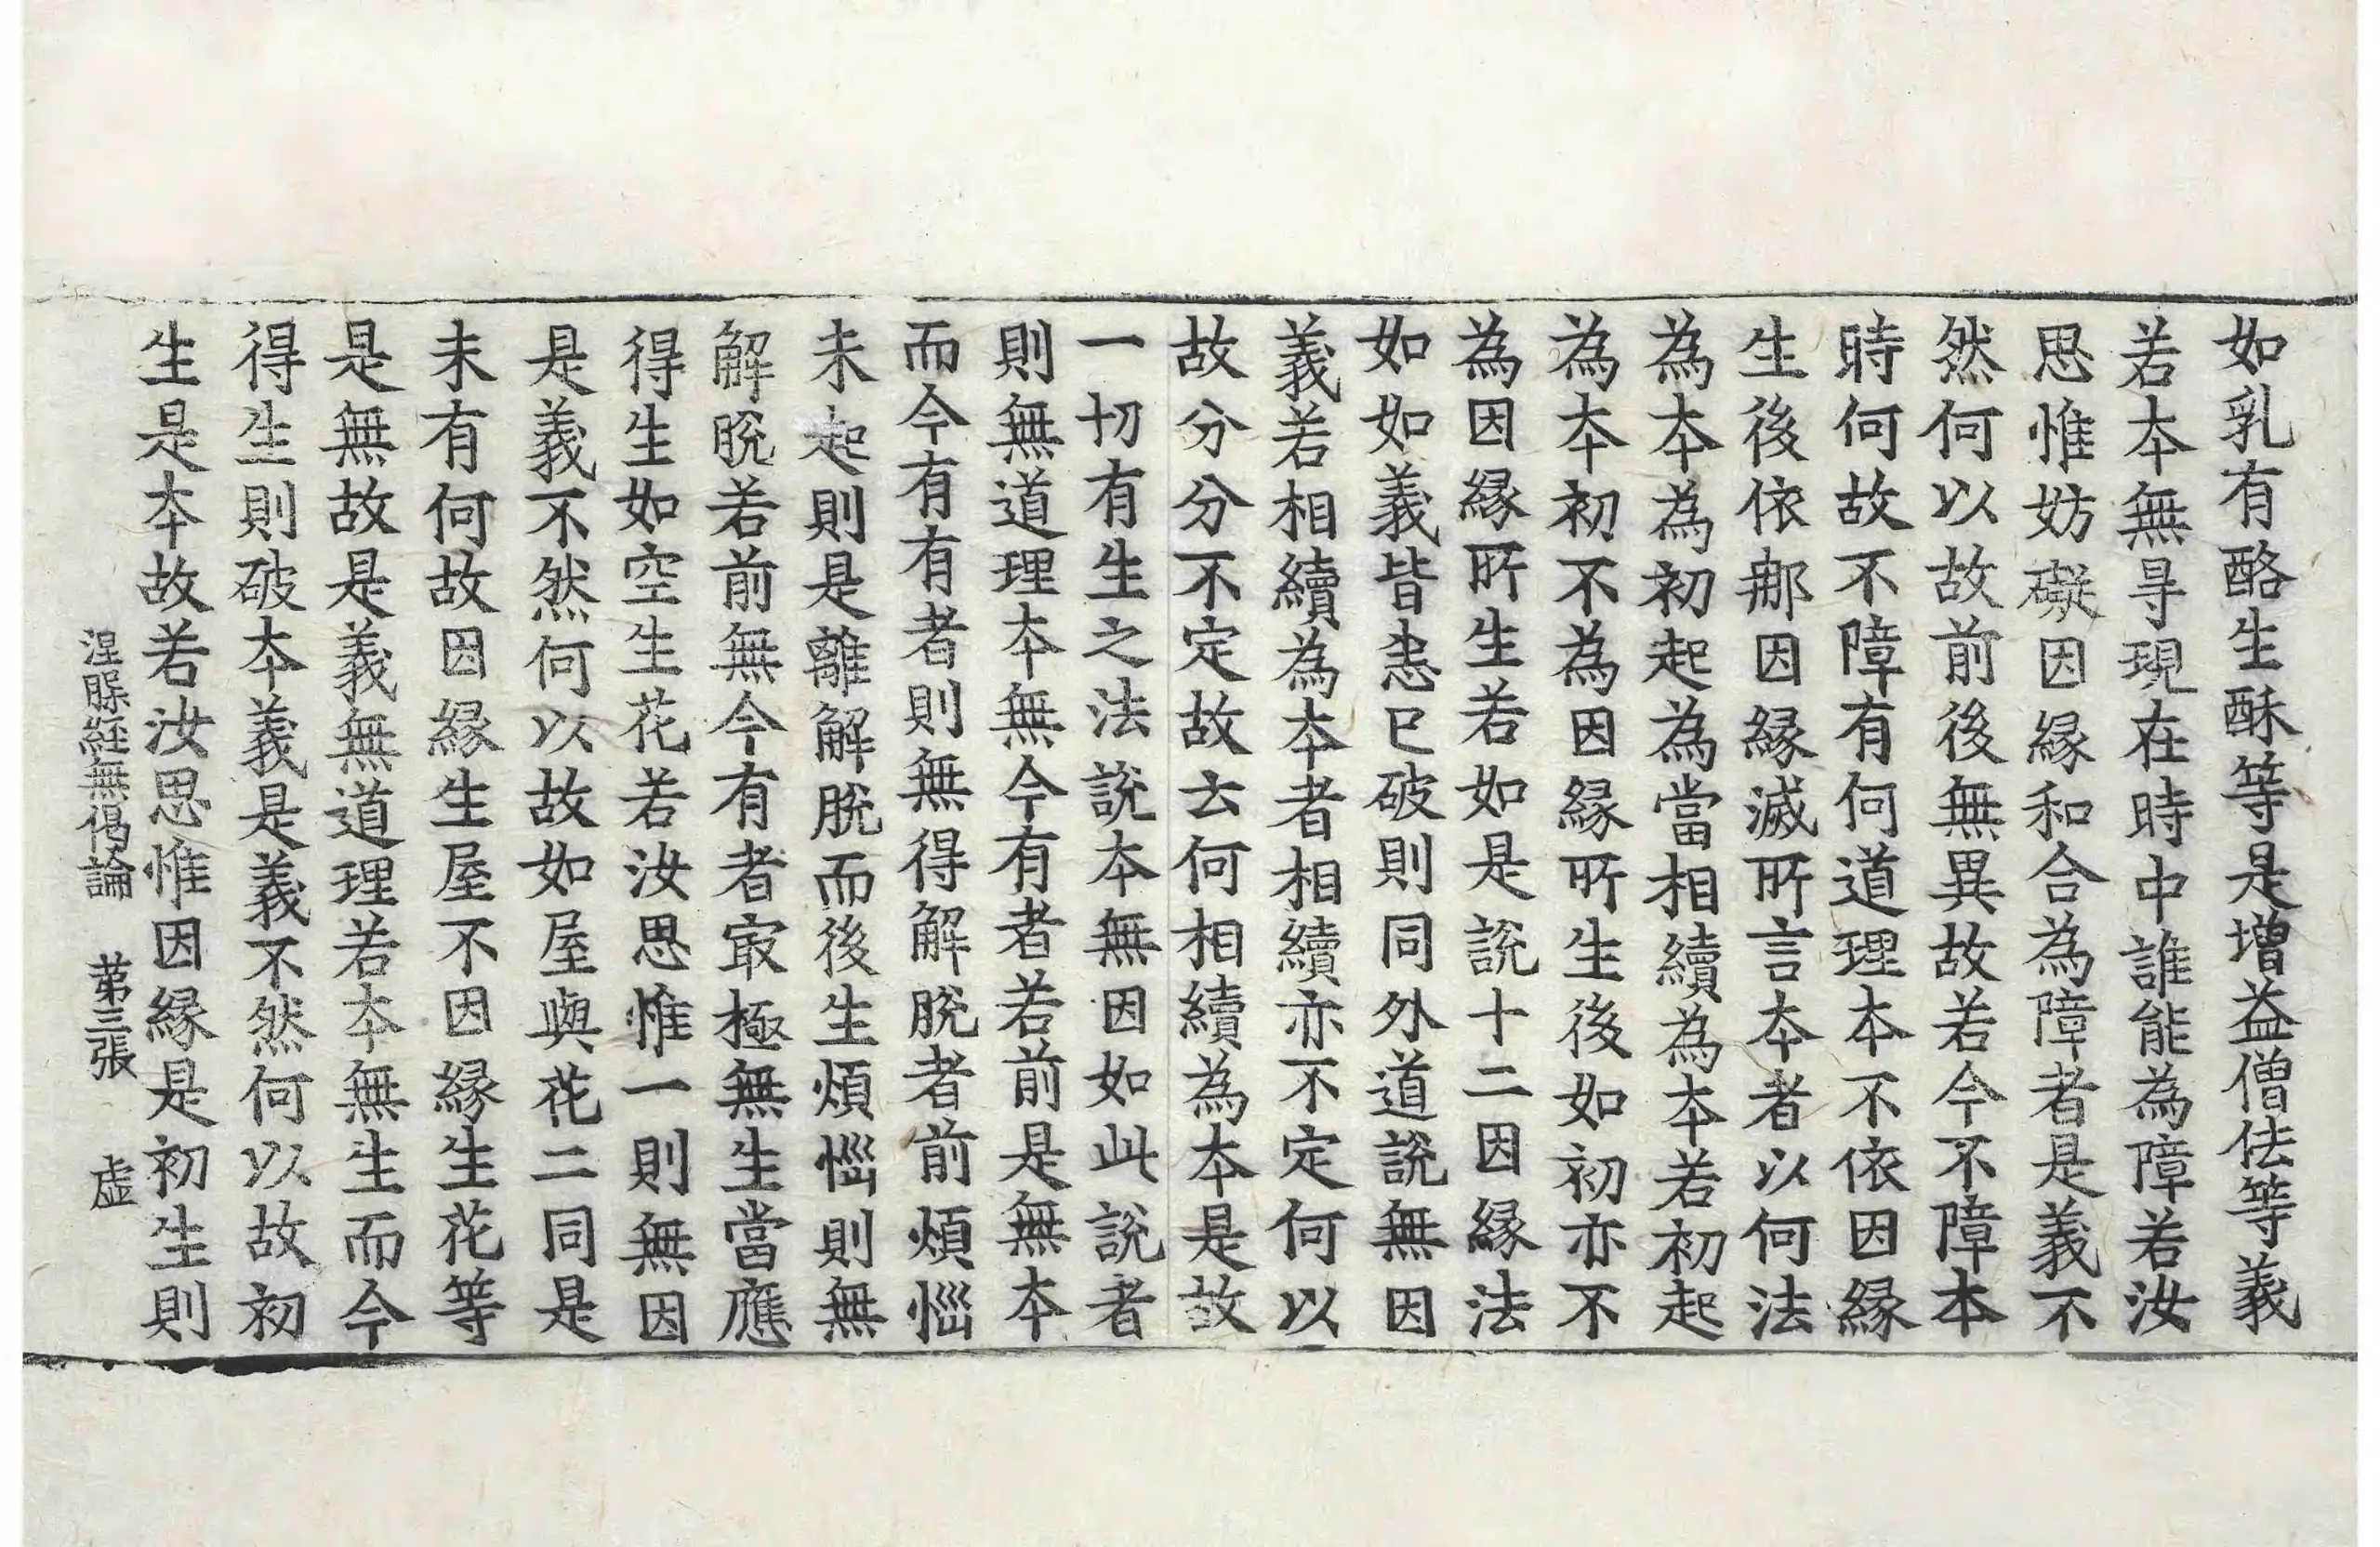 如乳有酪生酥等是增益僧佉等義
若本無㝵現在時中誰能為障若汝
思惟妨礙因緣和合為障者是義不
然何以故前後無異故若今不障本
時何故不障有何道理本不依因緣
生後依那因緣滅所言本者以何法
為本為初起為當相續為本若初起
為本初不為因緣所生後如初亦不
為因緣所生若如是說十二因緣法
如如義皆悉已破則同外道說無因
義若相續為本者相續亦不定何以
故分分不定故云何相續為本是故
一切有生之法說本無因如此說者
則無道理本無今有者若前是無本
而今有有者則無得解脫者前煩惱
未起則是離解脫而後生煩惱則無
解脫若前無今有者㝡極無生當應
得生如空生花若汝思惟一則無因
是義不然何以故如屋與花二同是
未有何故因緣生屋不因緣生花等
是無故是義無道理若本無生而今
得生則破本義是義不然何以故初
生是本故若汝思惟因緣是初生則
涅槃經無偈論　第三張　虛